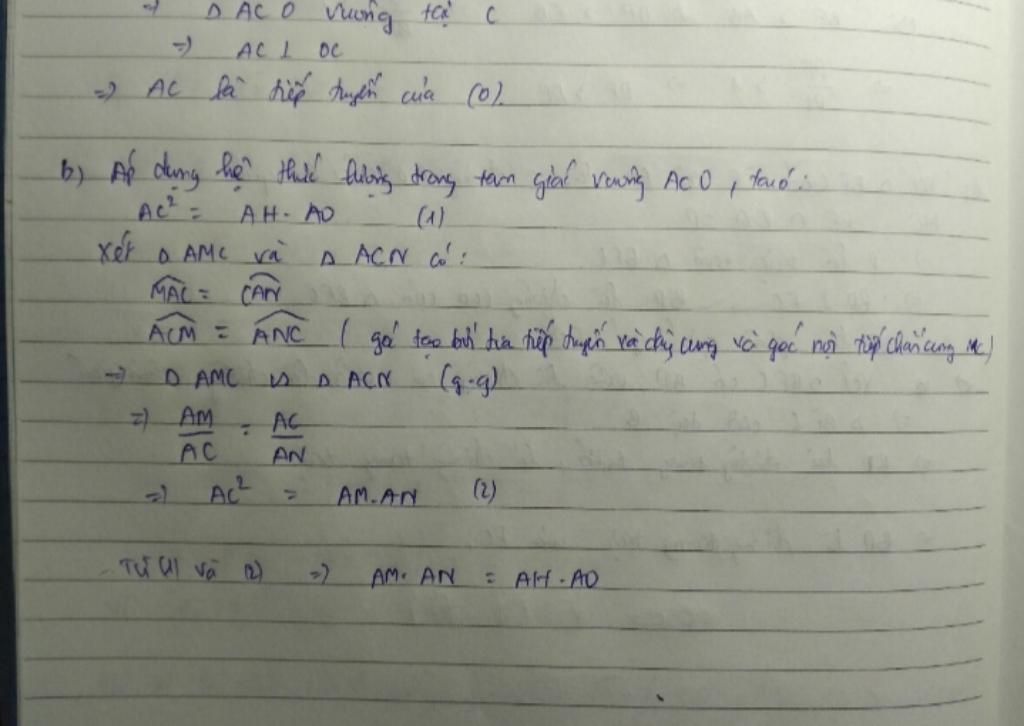 ⇒ Δ ACO vuông tại C
⇒ AC ⊥ OC
⇒ AC là tiếp tuyến của (O).
b) Áp dụng hệ thức lượng trong tam giác vuông ACO, ta có:
AC² = AH. AO (1)
Xét Δ AMC và Δ ACN có:
\widehat{MAC} = \widehat{CAN}
\widehat{ACM} = \widehat{ANC} ( góc tạo bởi tia tiếp tuyến và dây cung và góc nội tiếp chắn cung MC)
⇒ Δ AMC ∽ Δ ACN (g.g)
⇒ AM/AC = AC/AN
⇒ AC² = AM.AN (2)
Từ (1) và (2) ⇒ AM. AN = AH. AO